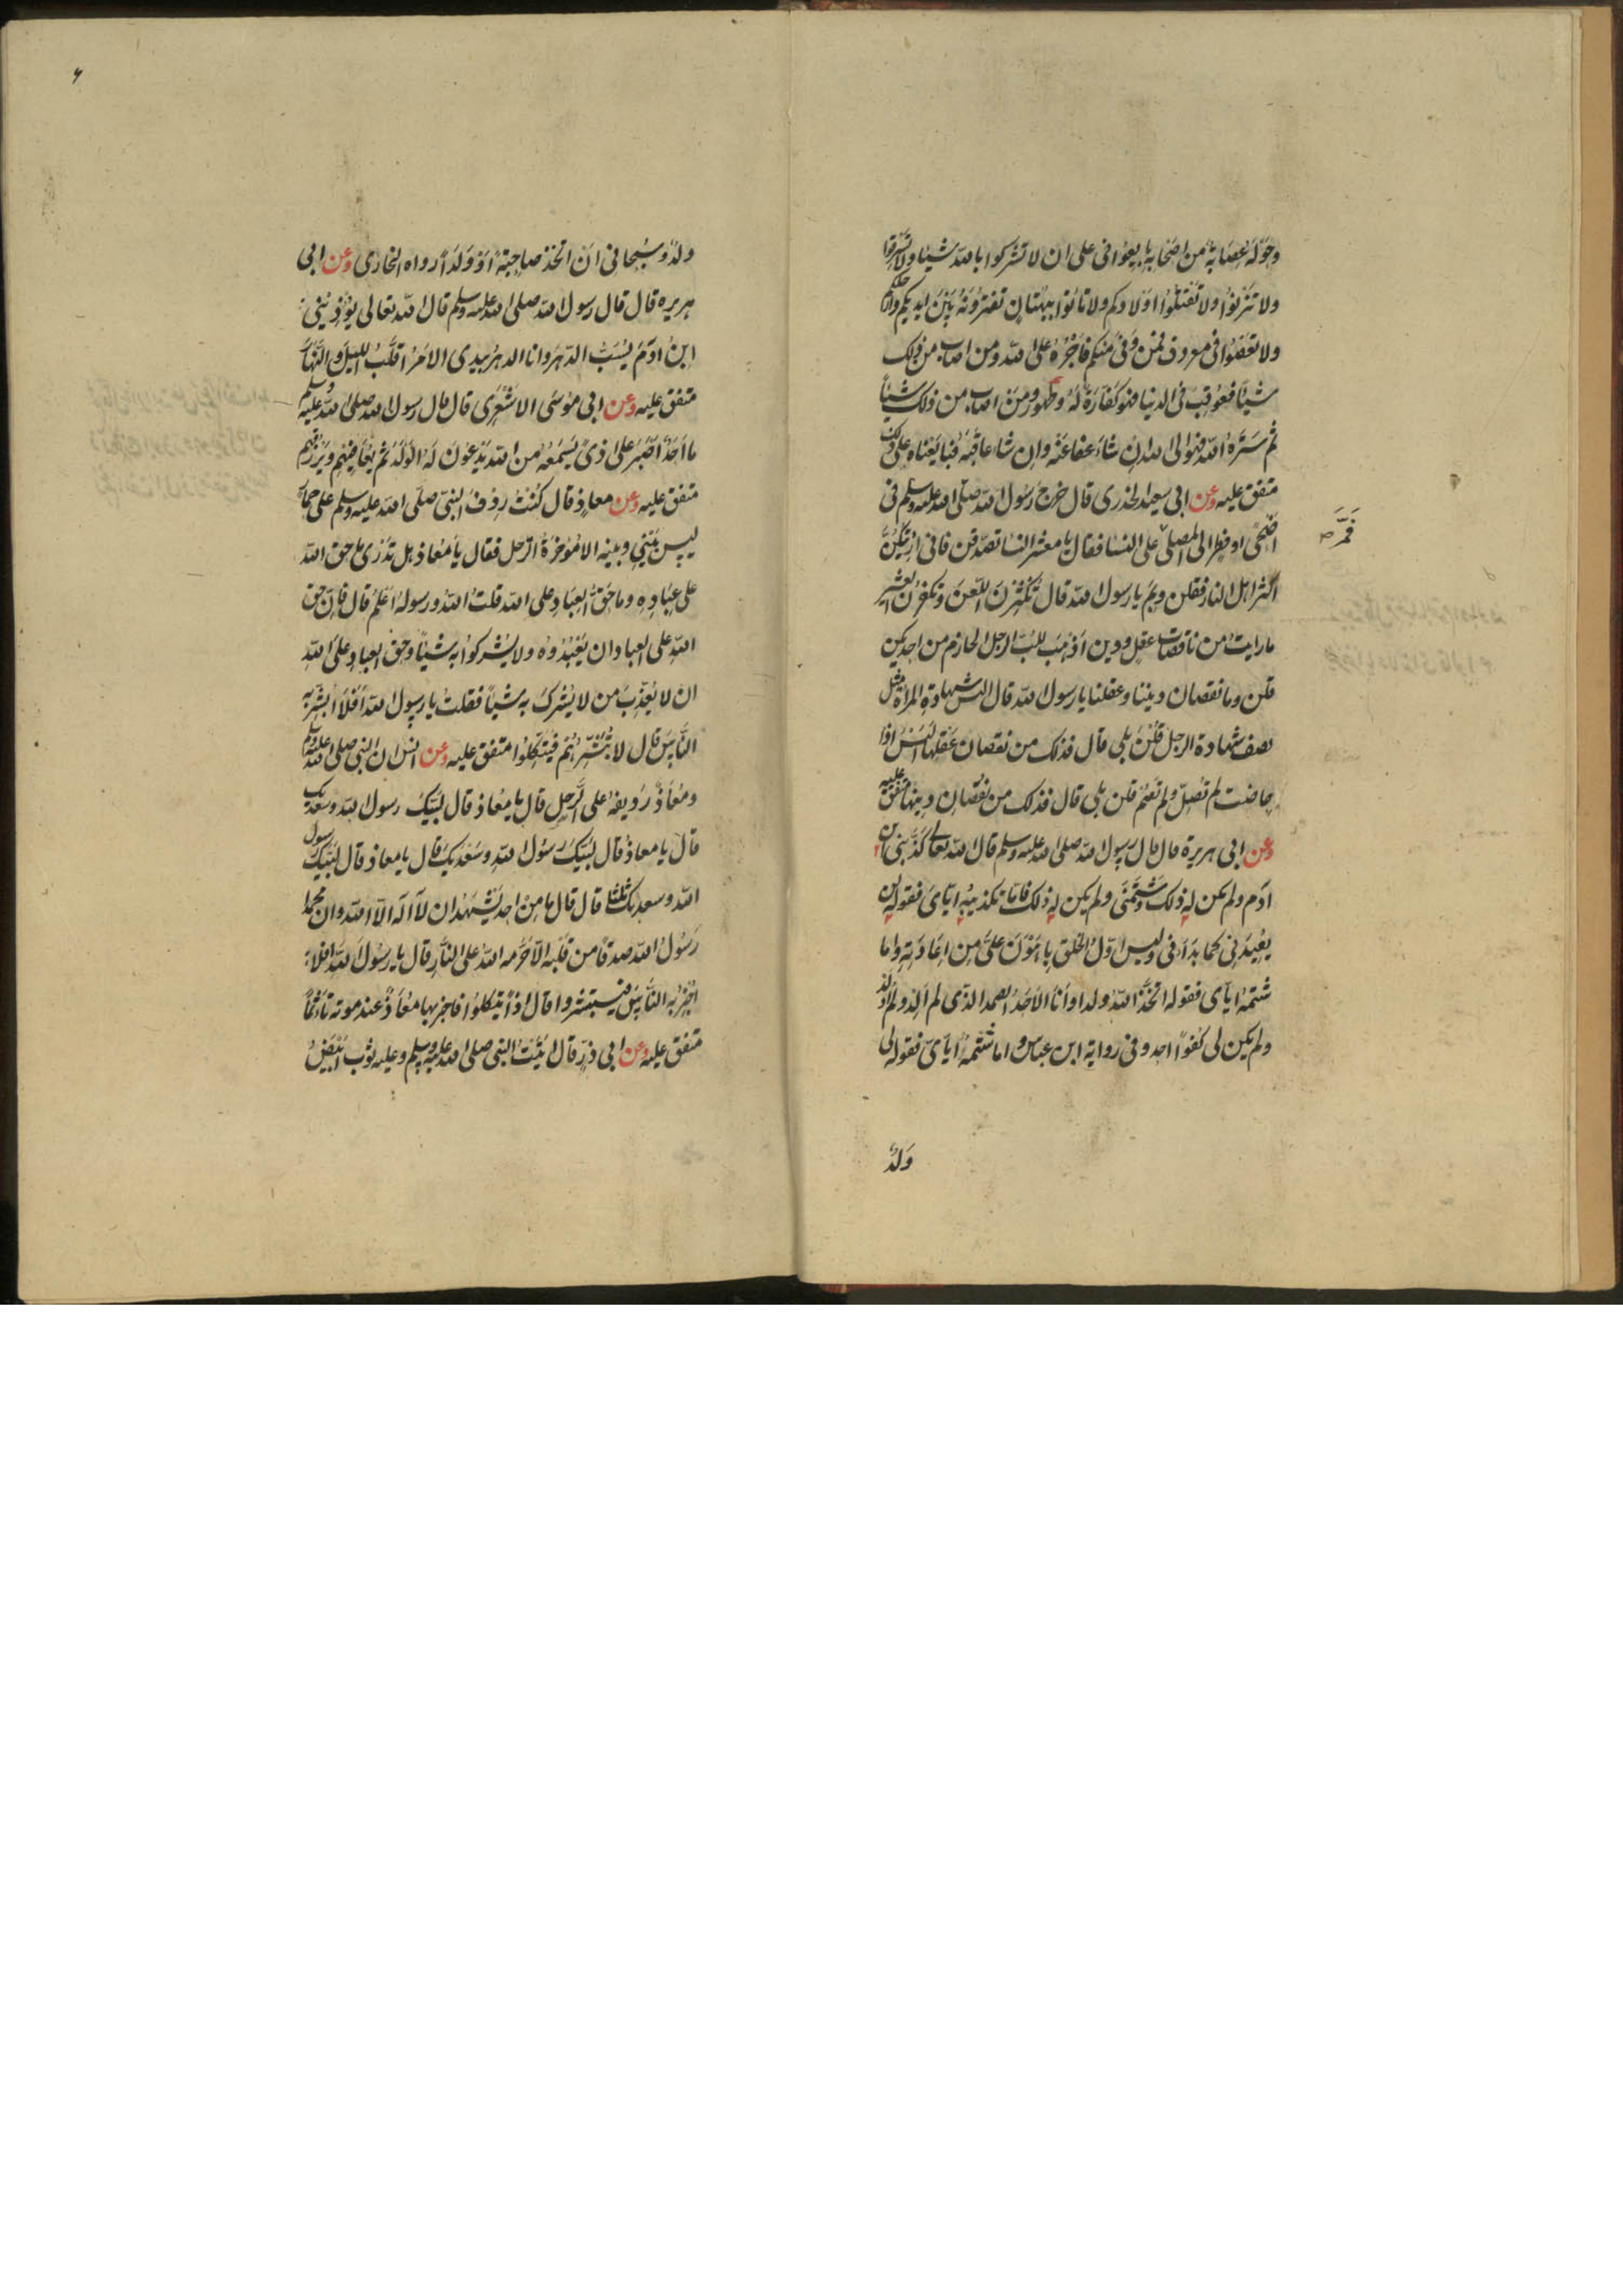 وحوله عصابة من اصحابه بايعوني على ان لا تشركوا بالله شيئا ولا تسرقوا
ولا تزنوا ولا تقتلوا اولادكم ولا تاتوا ببهتان تفترونه بين ايديكم وارجلكم
ولا تعصوا في معروف فمن وفى منكم فاجره على الله ومن اصاب من ذلك
شيئا فعوقب في الدنيا فهو كفارة له وطهور ومن اصاب من ذلك شيئا
ثم ستره الله فهو الى الله ان شاء عفا عنه وان شا عاقبه فبايعناه على ذلك
متفق عليه وعن ابي سعيد الخدري قال خرج رسول الله صلى الله عليه وسلم في
اضحى او فطر الى المصلى على النسا فقال يا معشر النسا تصدقن فاني اريتكن
فمر صح
اكثر اهل النار فقلن وبم يا رسول الله قال تكثرن اللعن وتكفرن العشير
ما رايت من ناقصات عقل ودين اذهب للب الرجل الحازم من احديكن
قلن وما نقصان ديننا وعقلنا يا رسول الله قال اليس شهادة المراة مثل
نصف شهادة الرجل قلن بلى قال فذلك من نقصان عقلها اليس اذا
حاضت لم تصل ولم تصم قلن بلى قال فذلك من نقصان دينها متفق عليه
وعن ابي هريرة قال قال رسول الله صلى الله عليه وسلم قال الله تعالى كذبني ابن
ادم ولم يكن له ذلك وشتمني ولم يكن له ذلك فاما تكذيبه اياي فقوله لن
يعيدني كما بدأني وليس اول الخلق باهون علي من اعادته واما
شتمه اياي فقوله اتخذ الله ولدا وانا الاحد الصمد الذي لم الد ولم اولد
ولم يكن لي كفوا احد وفي رواية ابن عباس واما شتمه اياي فقوله لي
ولد
ولد وسبحاني ان اتخذ صاحبة او ولدا رواه البخاري وعن ابي
هريره قال قال رسول الله صلى الله عليه وسلم قال الله تعالى يؤذيني
ابن ادم يسب الدهر وانا الدهر بيدي الامر اقلب الليل والنهار
متفق عليه وعن ابي موسى الاشعري قال قال رسول الله صلى الله عليه وسلم
ما احد اصبر على اذى يسمعه من الله يدعون له الولد ثم يعافيهم ويرزقهم
متفق عليه وعن معاذ قال كنت ردف النبي صلى الله عليه وسلم على حمار
ليس بيني وبينه الا مؤخرة الرحل فقال يا معاذ هل تدري ما حق الله
على عباده وما حق العباد على الله قلت الله ورسوله اعلم قال فان حق
الله على العباد ان يعبدوه ولا يشركوا به شيئا وحق العباد على الله
ان لا يعذب من لا يشرك به شيئا فقلت يا رسول الله افلا ابشر به
الناس قال لا تبشرهم فيتكلوا متفق عليه وعن انس ان النبي صلى الله عليه وسلم
ومعاذ رديفه على الرحل قال يا معاذ قال لبيك رسول الله وسعديك
قال يا معاذ قال لبيك رسول الله وسعديك قال يا معاذ قال لبيك رسول
الله وسعديك ثلثا قال قال ما من احد يشهد ان لا اله الا الله وان محمدا
رسول الله صدقا من قلبه الا حرمه الله على النار قال يا رسول الله افلا
اخبر به الناس فيستبشروا قال اذا يتكلوا فاخبر بها معاذ عند موته تاثما
متفق عليه وعن ابي ذر قال اتيت النبي صلى الله عليه وسلم وعليه ثوب ابيض